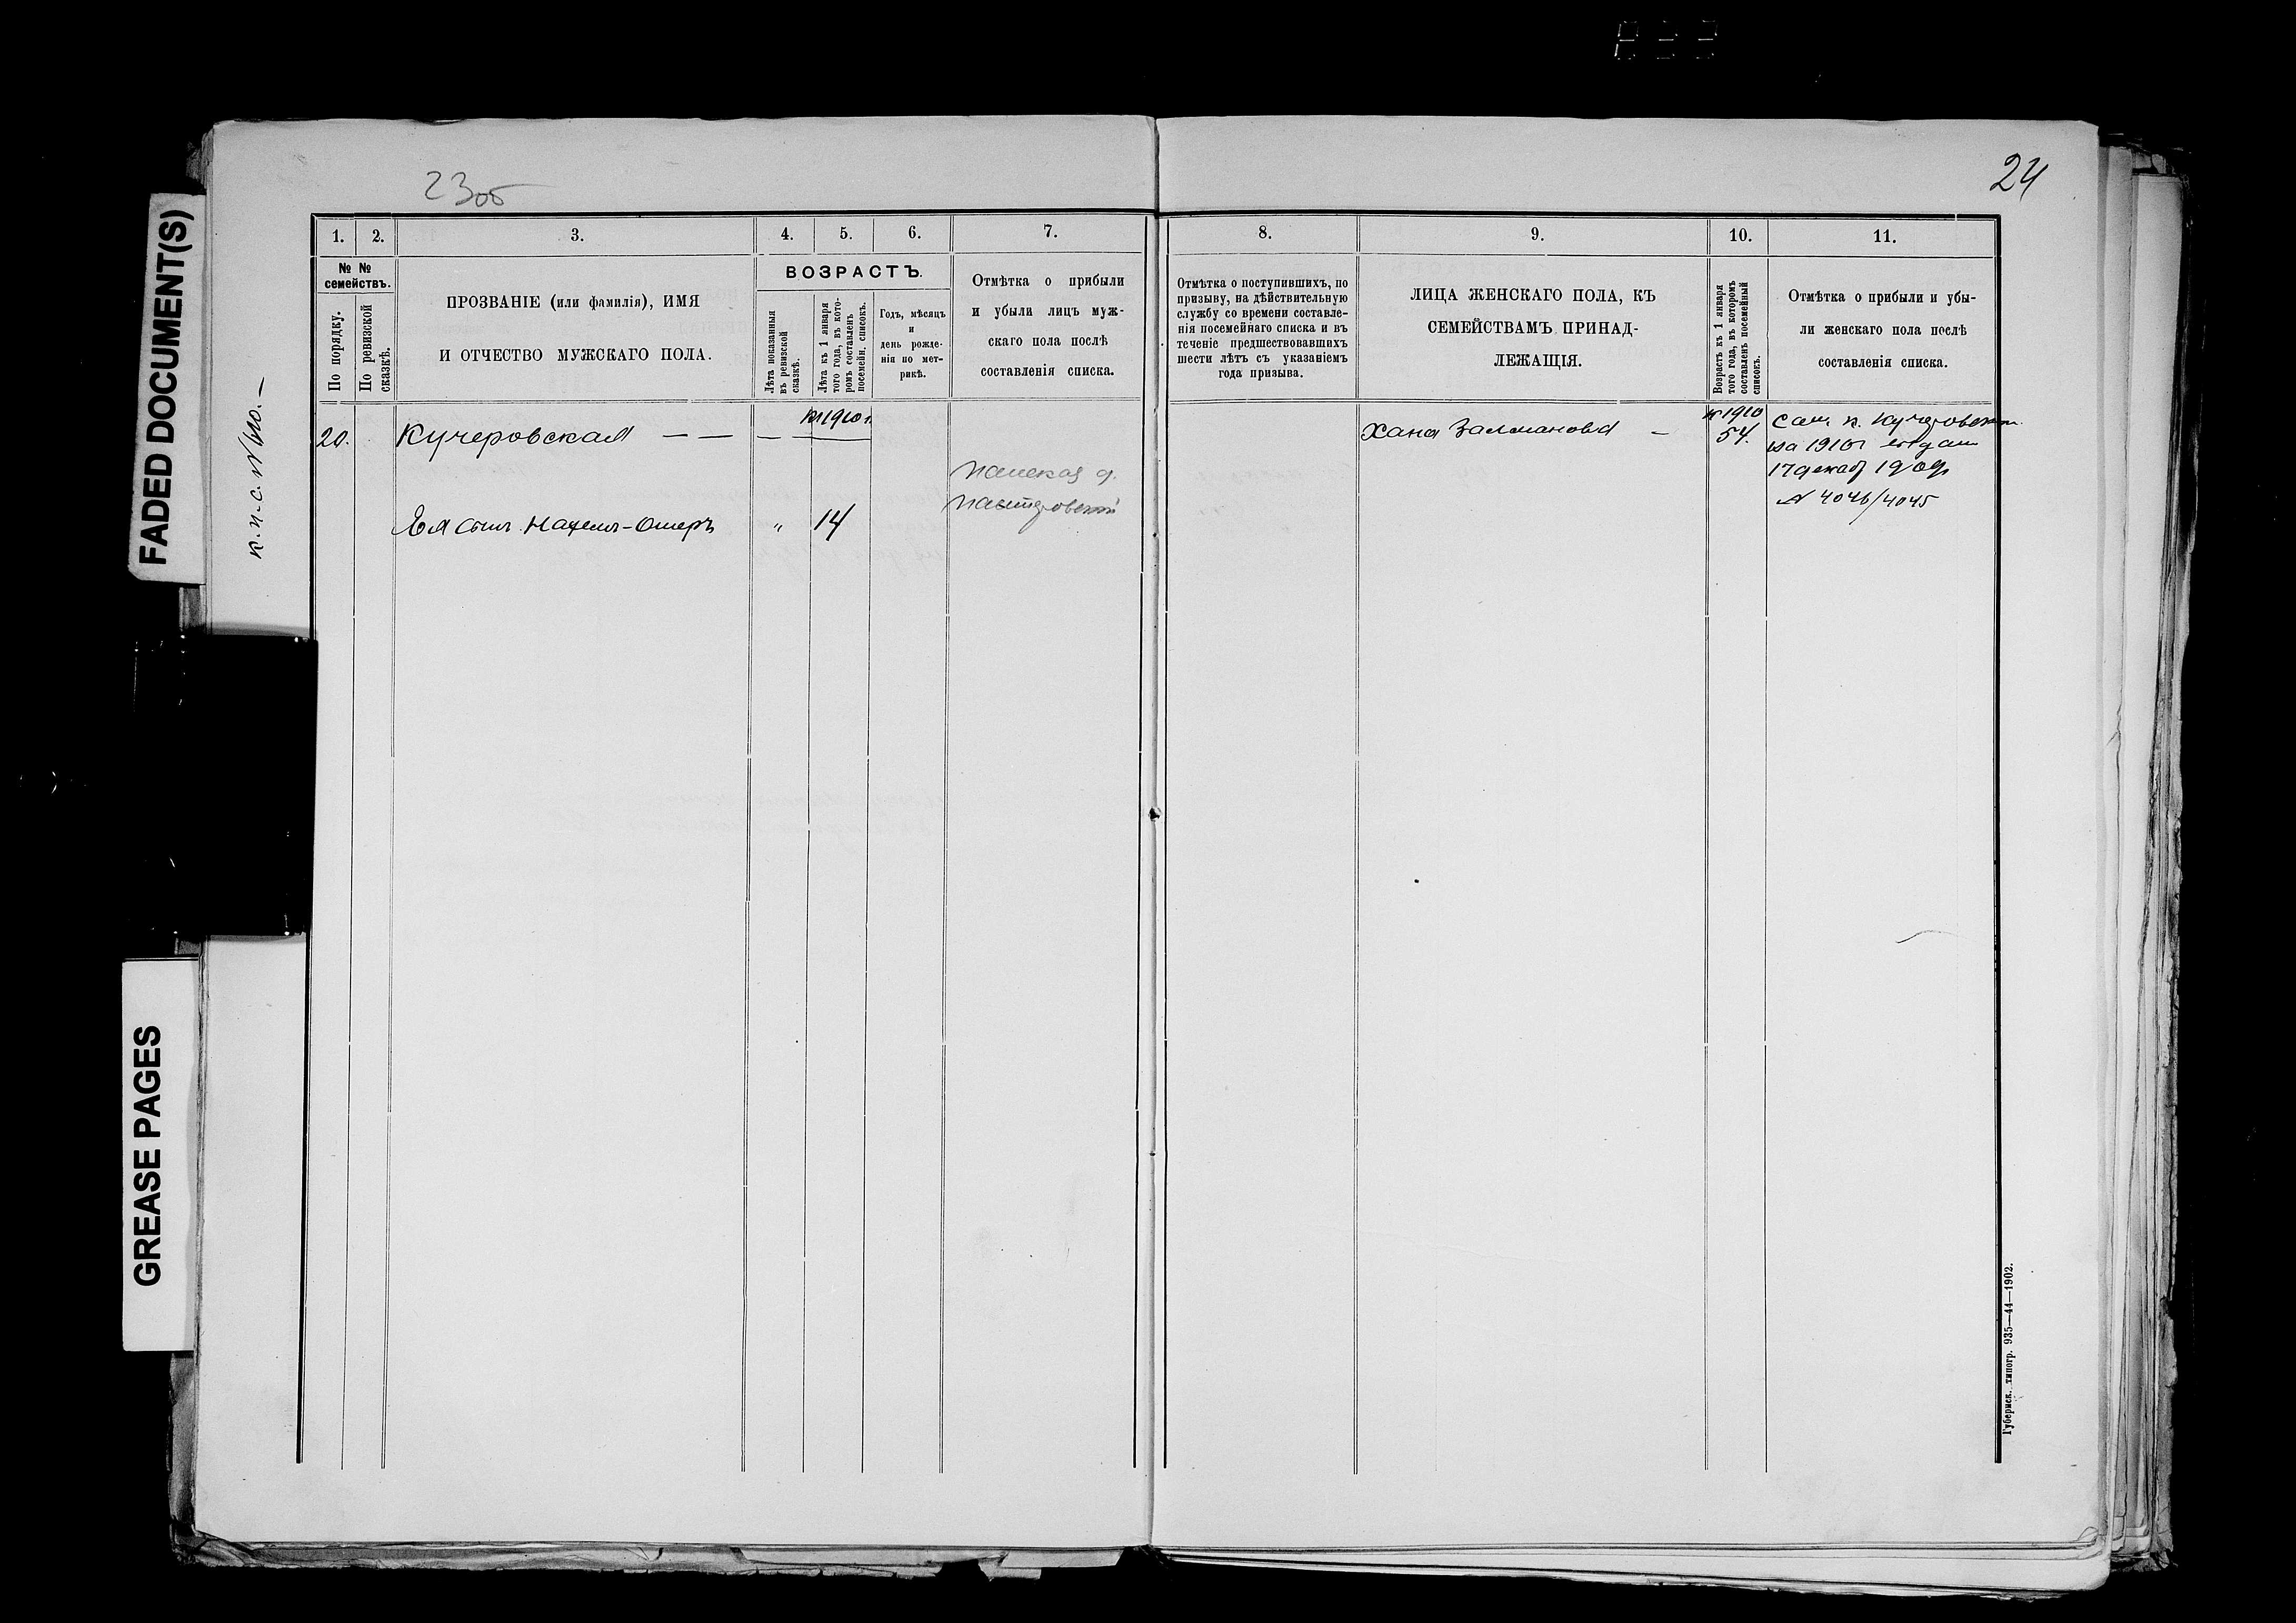 FADED DOCUMENT(S)
GREASE PAGES
23об
24
к. п. с.
1.
2.
3.
4.
5.
6.
7.
8.
9.
10.
11.
№ №
семействъ.
По порядку.
По ревизской
сказкѣ.
ПРОЗВАНІЕ (или фамилія), ИМЯ
И ОТЧЕСТВО МУЖСКАГО ПОЛА.
ВОЗРАСТЪ.
Лѣта показанныя
въ ревизской
сказкѣ.
Лѣта къ 1 января
того года, въ кото-
ромъ составленъ
посемейн. списокъ.
Годъ, мѣсяцъ
и
день рожде-
нія по мет-
рикѣ.
Отмѣтка о прибыли
и убыли лицъ муж-
скаго пола послѣ
составленія списка.
Отмѣтка о поступившихъ, по
призыву, на дѣйствительную
службу со времени составле-
нія посемейнаго списка и въ
теченіе предшествовавшихъ
шести лѣтъ съ указаніемъ
года призыва.
ЛИЦА ЖЕНСКАГО ПОЛА, КЪ
СЕМЕЙСТВАМЪ ПРИНАД-
ЛЕЖАЩІЯ.
Возрастъ къ 1 января
того года, въ которомъ
составленъ посемейный
списокъ.
Отмѣтка о прибыли и убы-
ли женскаго пола послѣ
составленія списка.
20. Кучеровская — — — к 1910 г.
Ея сынъ - Ошеръ „ 14
Хана Залманова — к 1910
54.
п. Кучеровской
на 1910г
17 декаб 1909г
№ 4046/4045
Губернск. типогр. 935—44—1902.